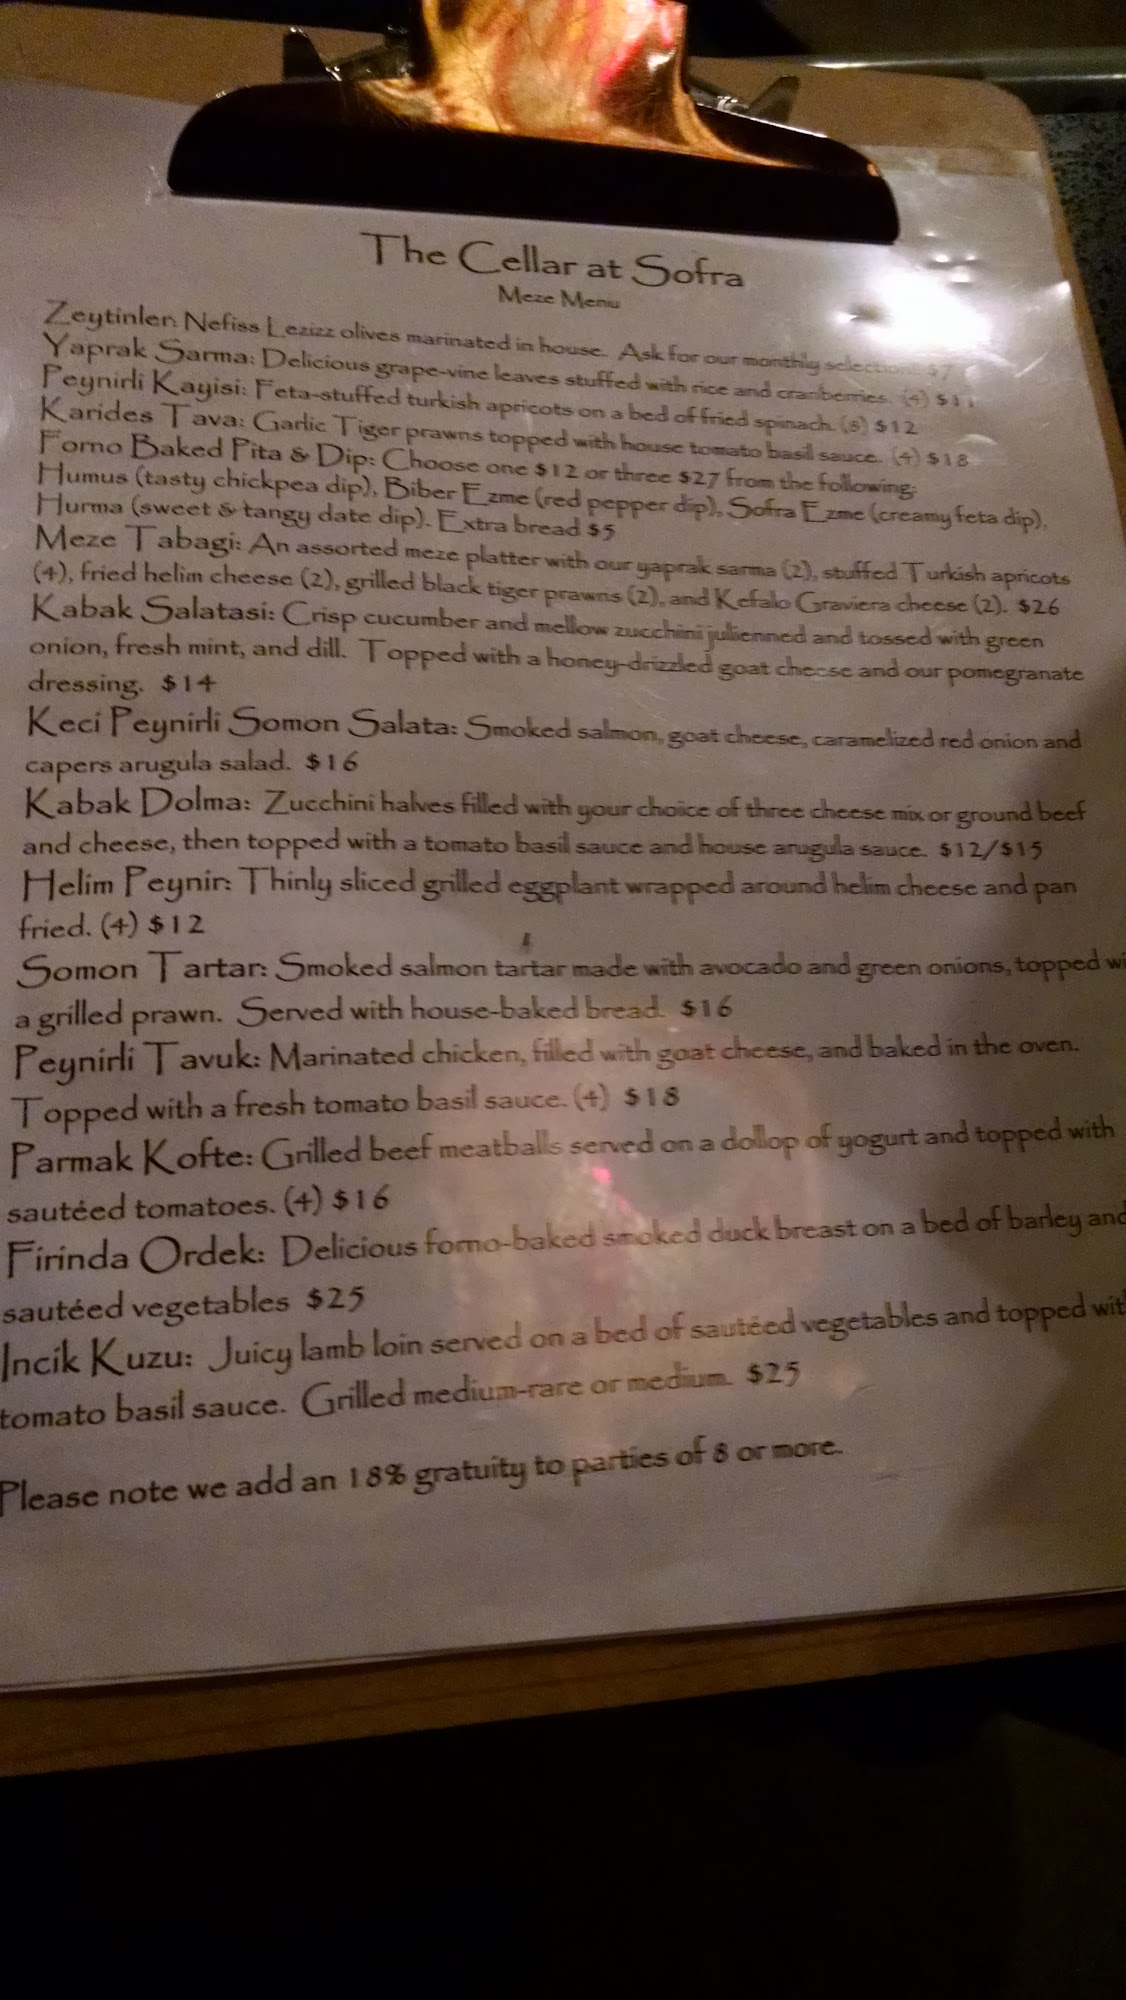 The Cellar at Sofra
Meze Menu
Zeytinler: Nefiss Lezizz olives marinated in house. Ask for our monthly selection. $7
Yaprak Sarma: Delicious grape-vine leaves stuffed with rice and cranberries. (4) $11
Peynirli Kayisi: Feta-stuffed turkish apricots on a bed of fried spinach. (8) $12
Karides Tava: Garlic Tiger prawns topped with house tomato basil sauce. (4) $18
Forno Baked Pita & Dip: Choose one $12 or three $27 from the following:
Humus (tasty chickpea dip), Biber Ezme (red pepper dip), Sofra Ezme (creamy feta dip),
Hurma (sweet & tangy date dip). Extra bread $5
Meze Tabagi: An assorted meze platter with our yaprak sarma (2), stuffed Turkish apricots
(4), fried helim cheese (2), grilled black tiger prawns (2), and Kefalo Graviera cheese (2). $26
Kabak Salatasi: Crisp cucumber and mellow zucchini julienned and tossed with green
onion, fresh mint, and dill. Topped with a honey-drizzled goat cheese and our pomegranate
dressing. $14
Keci Peynirli Somon Salata: Smoked salmon, goat cheese, caramelized red onion and
capers arugula salad. $16
Kabak Dolma: Zucchini halves filled with your choice of three cheese mix or ground beef
and cheese, then topped with a tomato basil sauce and house arugula sauce. $12/$15
Helim Peynir: Thinly sliced grilled eggplant wrapped around helim cheese and pan
fried. (4) $12
Somon Tartar: Smoked salmon tartar made with avocado and green onions, topped wi
a grilled prawn. Served with house-baked bread. $16
Peynirli Tavuk: Marinated chicken, filled with goat cheese, and baked in the oven.
Topped with a fresh tomato basil sauce. (4) $18
Parmak Kofte: Grilled beef meatballs served on a dollop of yogurt and topped with
sautéed tomatoes. (4) $16
Firinda Ordek: Delicious forno-baked smoked duck breast on a bed of barley and
sautéed vegetables $25
Incik Kuzu: Juicy lamb loin served on a bed of sautéed vegetables and topped wit
tomato basil sauce. Grilled medium-rare or medium. $25
Please note we add an 18% gratuity to parties of 8 or more.